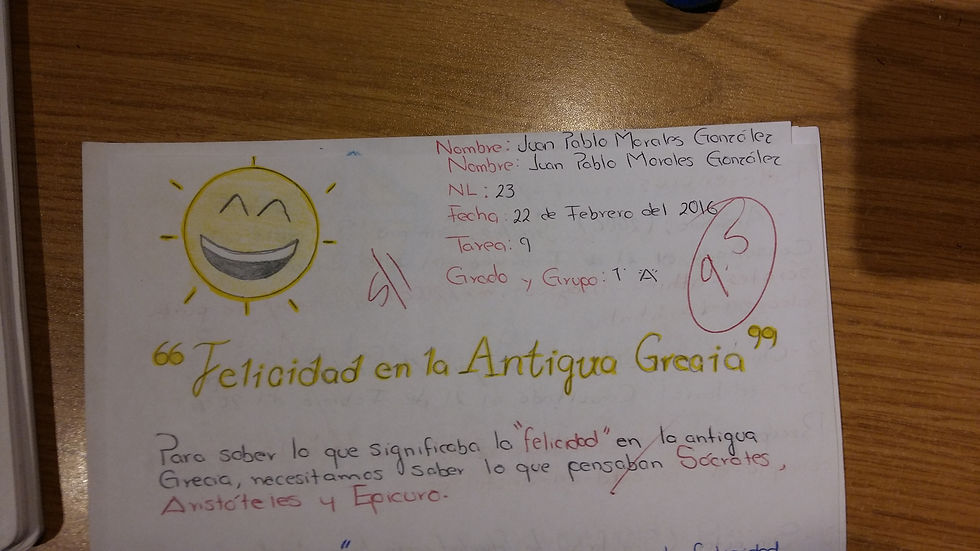 Nombre: Juan Pablo Morales González
Nombre: Juan Pablo Morales González
NL: 23
Fecha: 22 de Febrero del 2016
Tarea: 9
Grado y Grupo: 1° "A"
9.3
"Felicidad en la Antigua Grecia"
Para saber lo que significaba la "felicidad" en la antigua
Grecia, necesitamos saber lo que pensaban Sócrates,
Aristóteles y Epicuro.